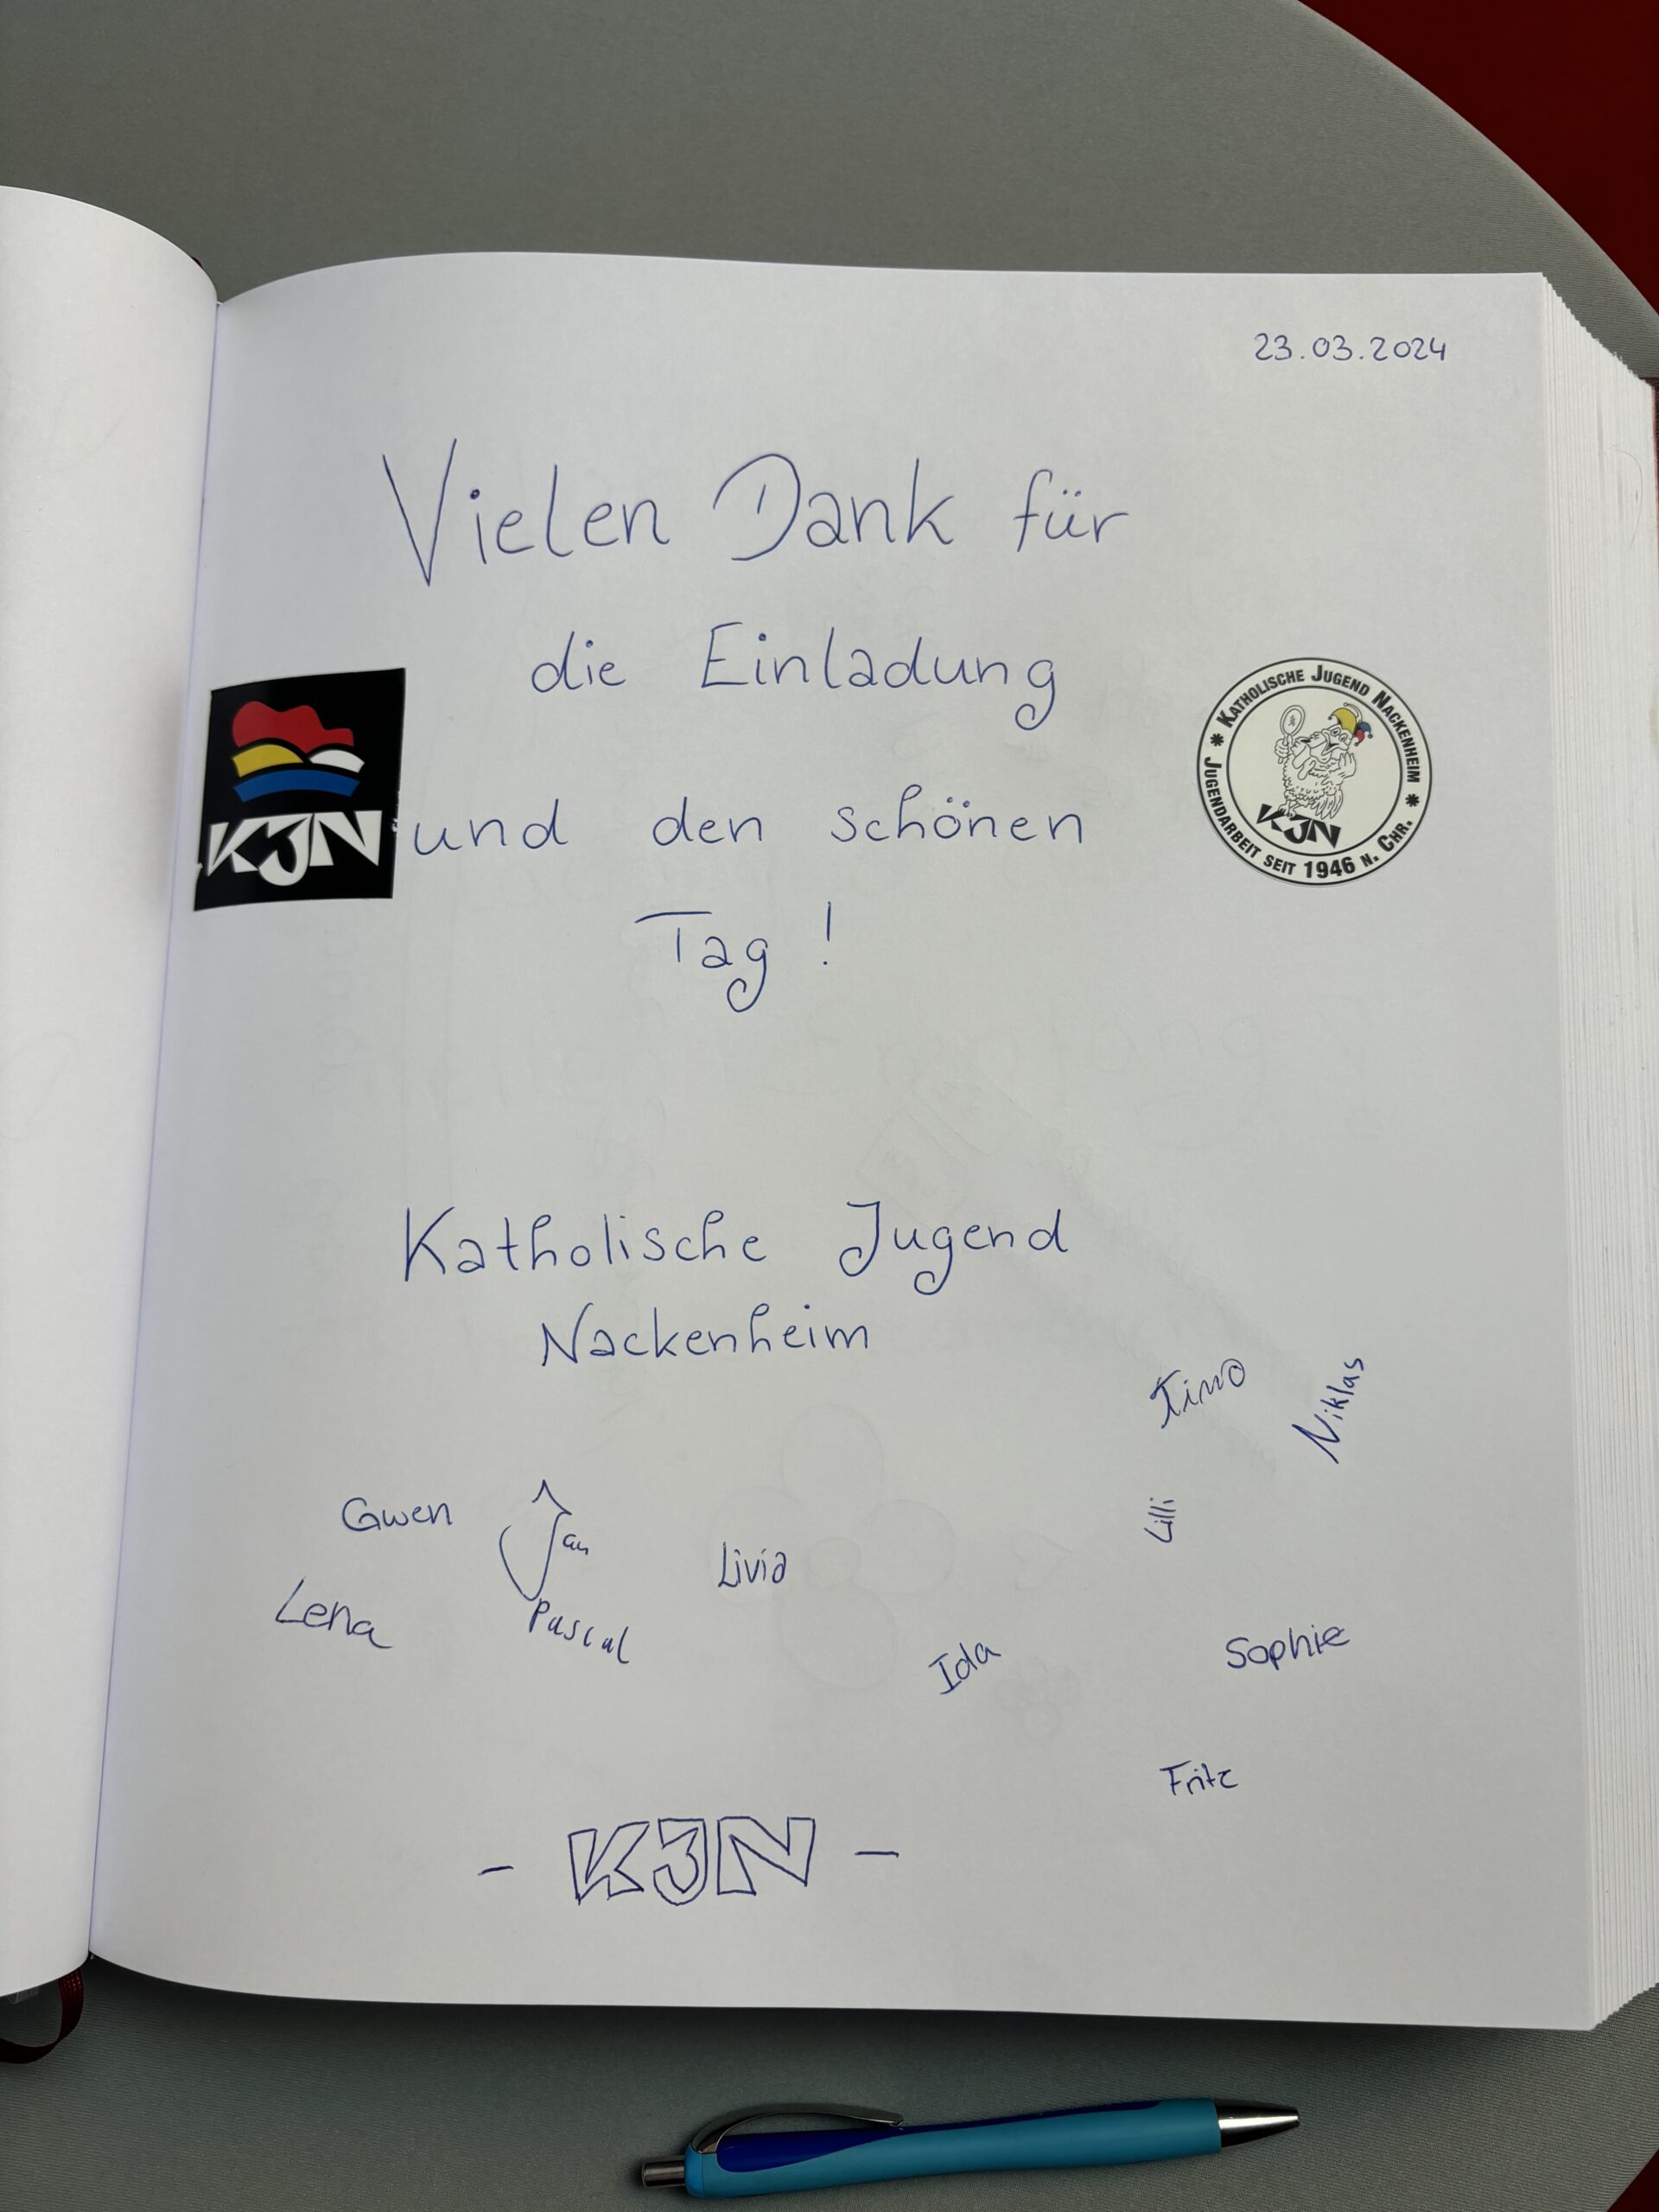 23.03.2024
Vielen Dank für
die Einladung
und den schönen
Tag !
KJN
KATHOLISCHE JUGEND NACKENHEIM
KJN
JUGENDARBEIT SEIT 1946 N. CHR.
Katholische Jugend
Nackenheim
Timo
Niklas
Gwen
Jan
Livia
Lilli
Lena
Pascal
Ida
Sophie
Fritz
- KJN -